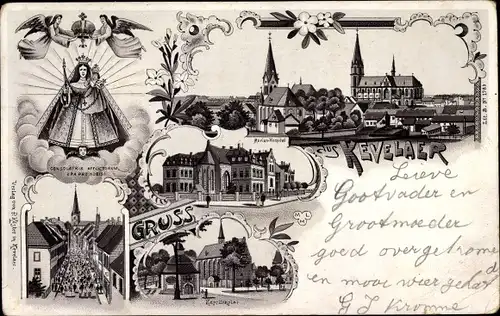 CONSOLATRIX AFFLICTORUM
ORA PRO NOBIS
Marien-Hospital
GRUSS
AUS KEVELAER
Kapellenplatz
Lieve
Grootvader en
Grootmoeder
goed overgekomen
en mooi weer gehad
G J Kromme